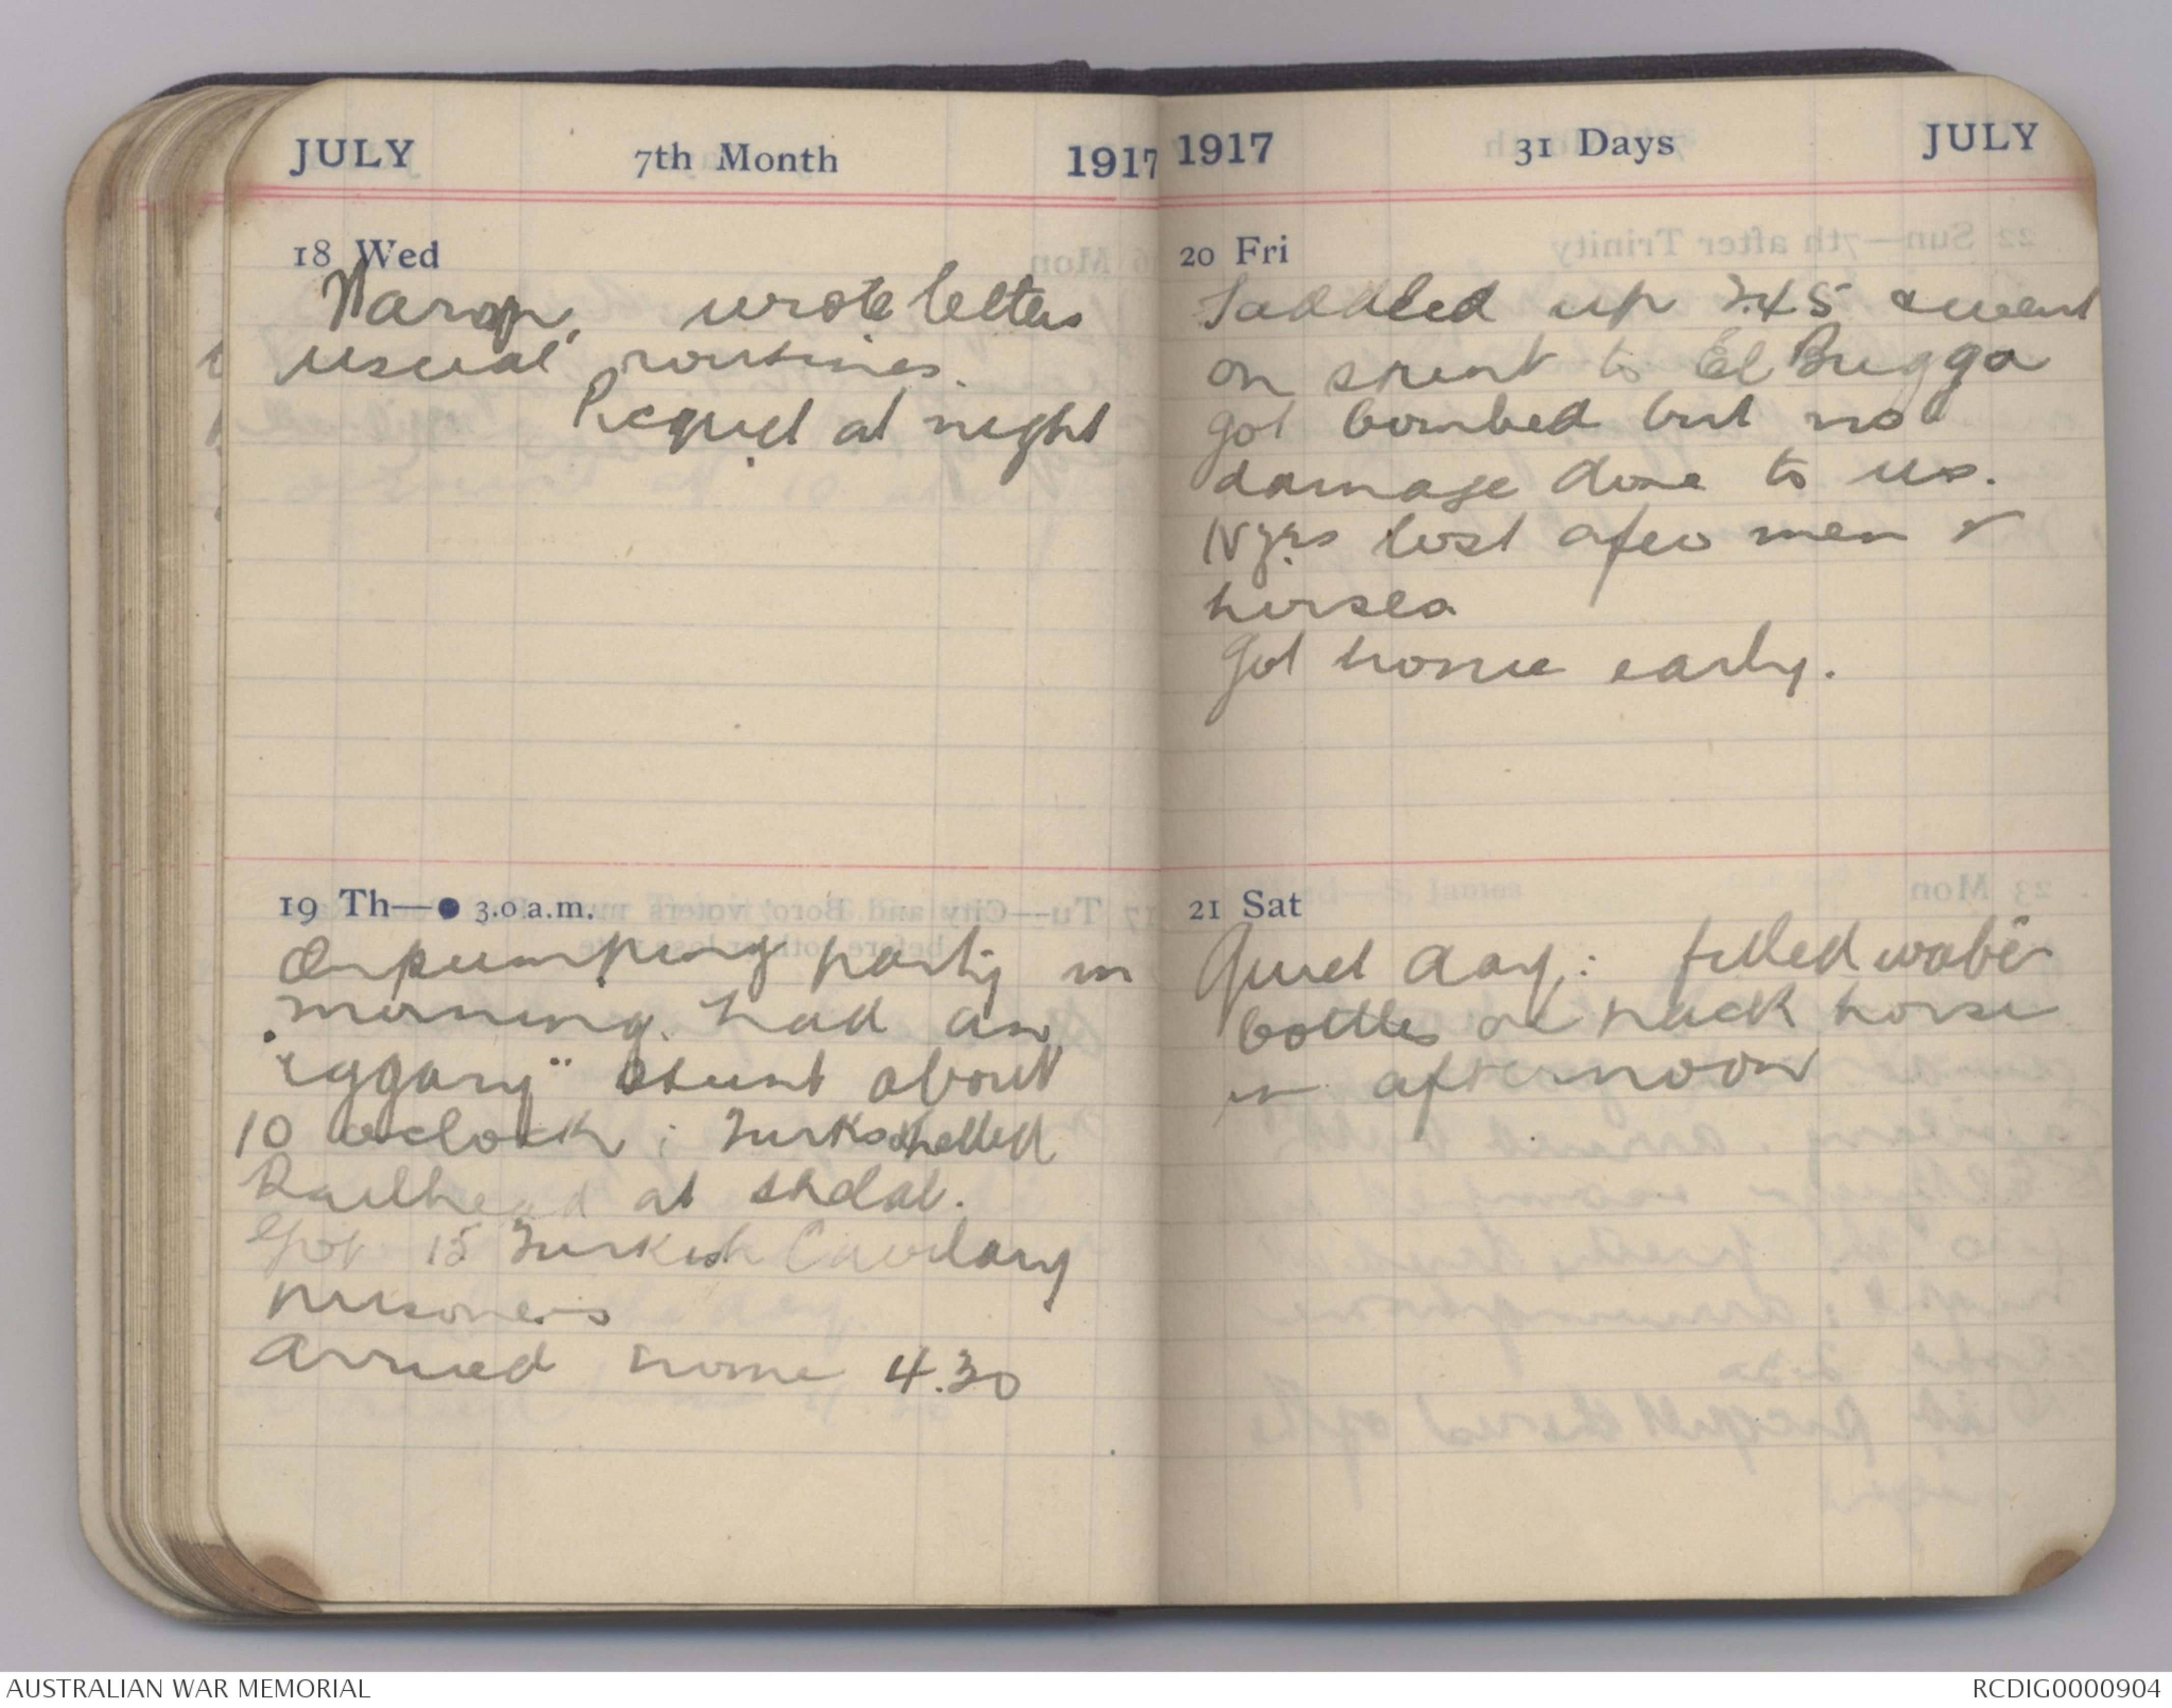 JULY 7th Month 1917
18 Wed
wrote letters
usual routines.
Picquet at night
19 Th—● 3.0 a.m.
On pumping party in
morning. had an
"iggary" stunt about
10 o'clock; Turks shelled
Railhead at
Got 15 Turkish Cavelary
prisoners
arrived home 4.30
1917 31 Days JULY
20 Fri
Saddled up 2.45 & went
on stunt to El Bugga
got bombed but no
damage done to us.
NZrs lost a few men &
horses
Got home early.
21 Sat
Quiet day: filled water
bottles on pack horse
in afternoon
AUSTRALIAN WAR MEMORIAL
RCDIG0000904